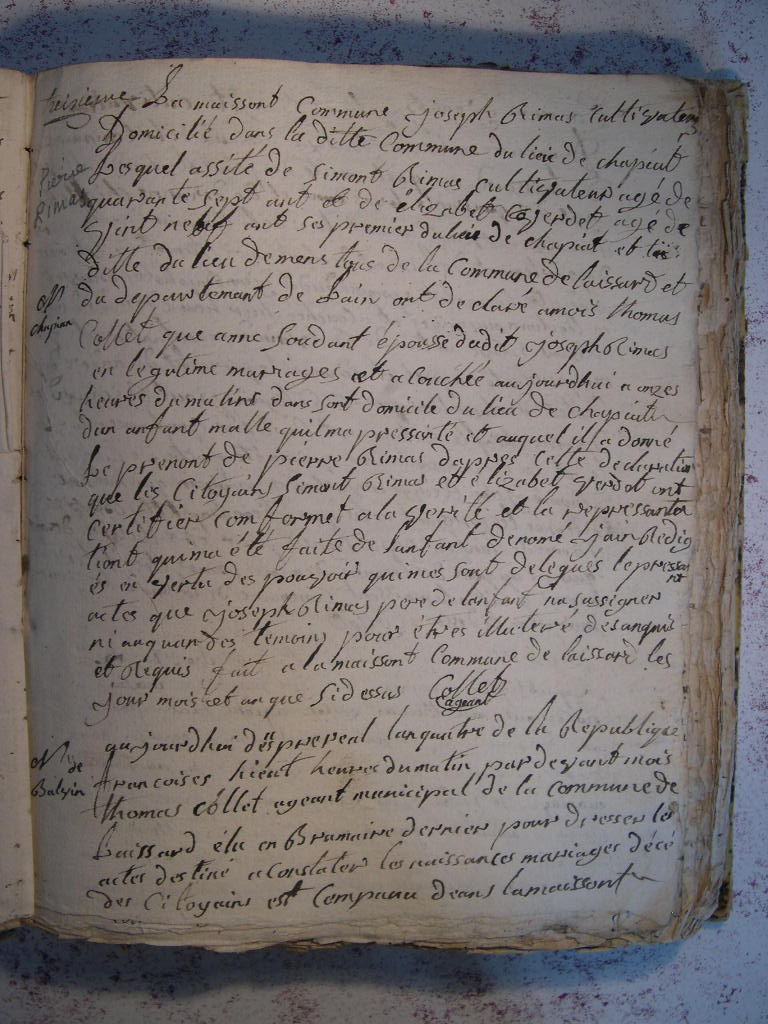 treizieme La maissont Commune joseph Rimas Cultivateur
Domicilié dans la ditte Commune du lieu de chapiat
Pierre Rimas
Lesquel assité de Simont Rimas cultivateur agé de
quarante sept ant et de élizabet Verdet agé de
vint neuf ant ses premier du lieu de chapiat et
ditte du lieu de de la Commune de laissard et
N chapian
du departement de Lain ont declaré amois thomas
Collet que anne Soudant épousse dudit joseph Rimas
en legutime mariages et acouchée aujourdhui a onzes
heures dumatins dans sont domicile du lieu de chapiat
dun anfant malle quilma pressanté et auquel il la donné
Le prenont de pierre Rimas dapres cette declaration
que les Citoyains Simont Rimas et élizabet verdet ont
certifier comformet ala verité et la repressanta
tiont quima été faite de lanfant denomé jain Rédig
és en vertu des pouvoir quimes sont delegués lepressant
actes que joseph Rimas pere de lanfant na su signer
ni auquun des temoins pour étres illiteré désanquis
et Requis fait a la maissont Commune de laissard les
jour mois et an que sidessus Collet
ageant
N de Balvin
aujourdhui prereal lanquatre de la Republique
francoises hieut heures dumatin pardevant mois
thomas Collet ageant municipal de la commune de
Laissard élu en Brumaire dernier pour dresser les
actes destiné a constater les naissances mariages décé
des Citoyains est Comparu deans la maissont